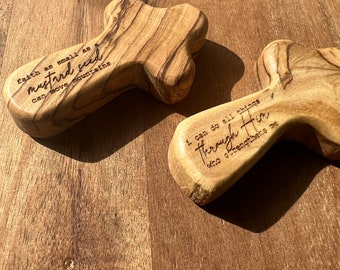 faith as small as a
mustard seed
can move mountains
i can do all things
through Him
who strengthens me